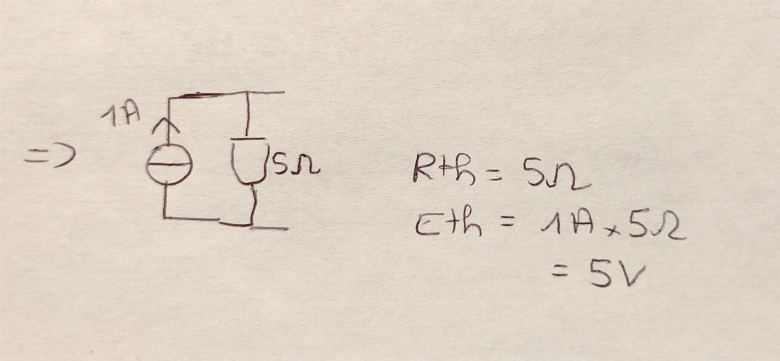 1A
=> 5Ω
Rth = 5Ω
Eth = 1A x 5Ω
= 5V